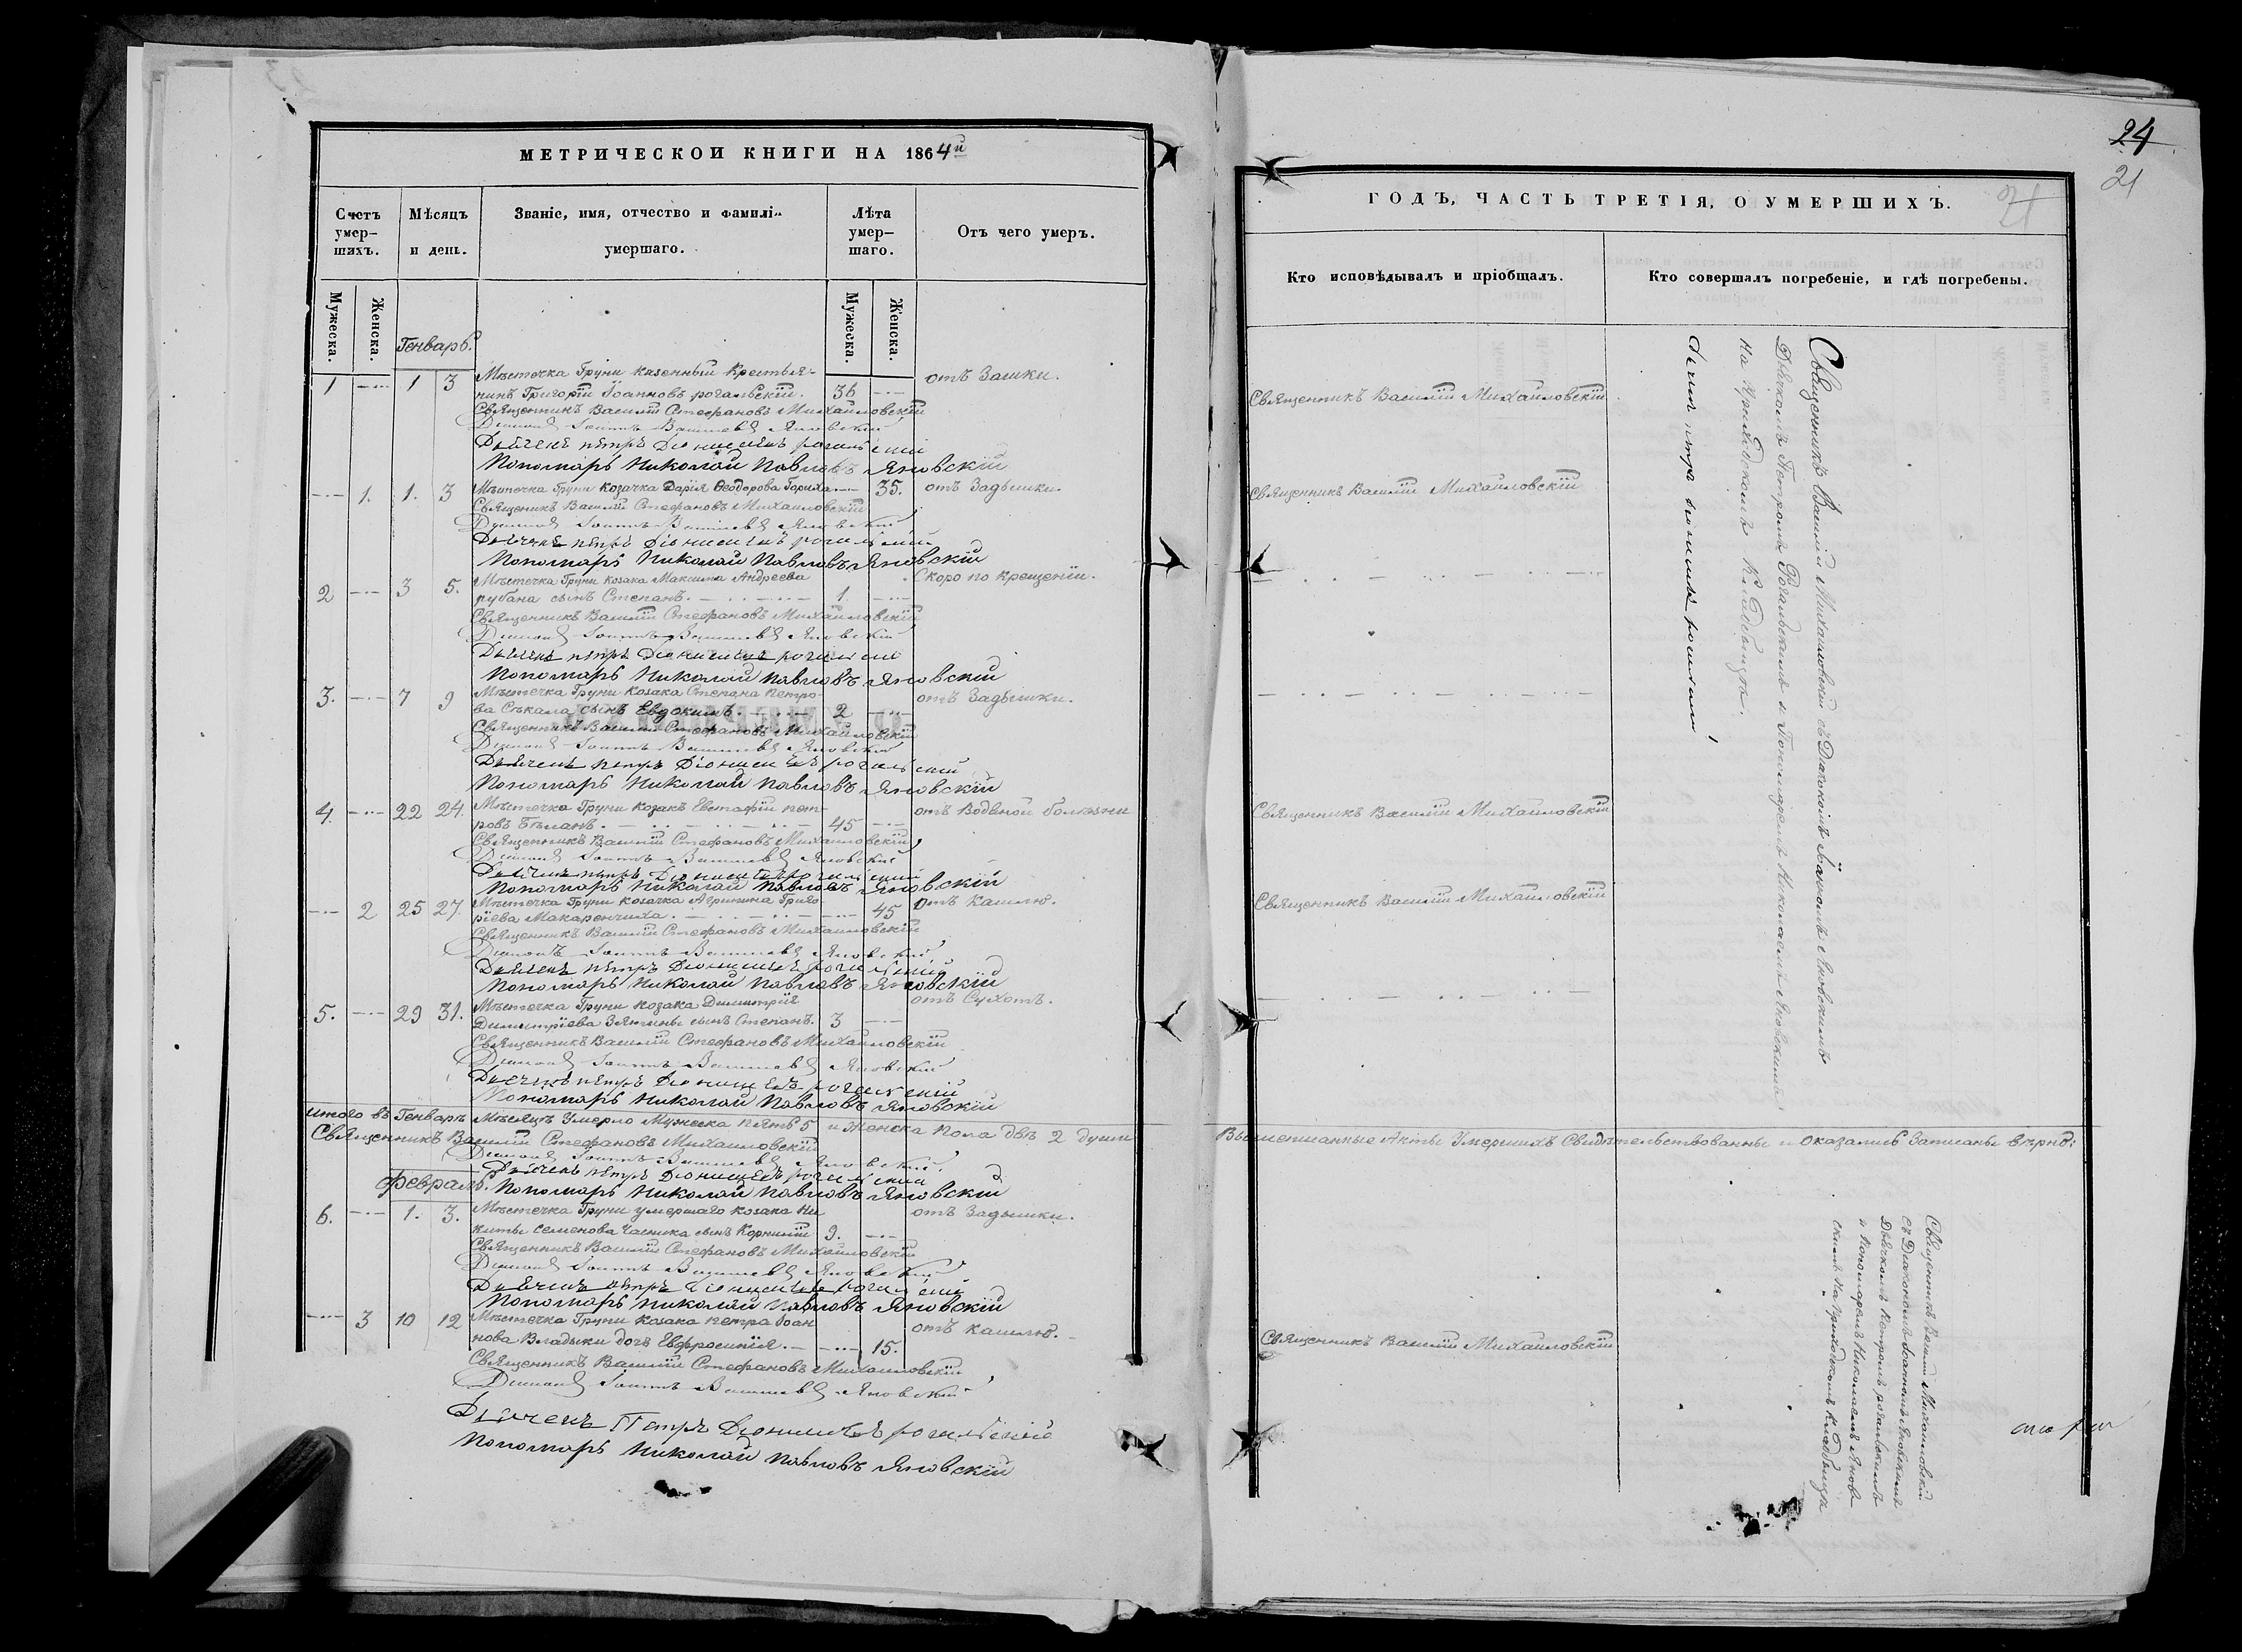 МЕТРИЧЕСКОЙ КНИГИ НА 1864й
Счетъ умер-шихъ.
Мѣсяцъ и день.
Званіе, имя, отчество и фамилія умершаго.
Лѣта умер-шаго.
Отъ чего умеръ.
Мужеска.
Женска.
Мужеска.
Женска.
Генварь.
Мѣстечка Груни казенный крестья-
1 — 1 3 нинъ Григорій Іоанновъ рогальскій. 36 — отъ Зашки.
Священникъ Василій Стефановъ Михайловскій
Діаконъ Іоаннъ Васильевъ Яновскій
Дьячекъ петръ Діонисіевъ рогальскій
Пономарь Николай Павловъ Яновскій
— 1. 1. 3 Мѣстечка Груни Козачка Дарія Ѳеодорова Гориха — 35. отъ Задышки.
Священикъ Василій Стефановъ Михайловскій
Діаконъ Іоаннъ Васильевъ Яновскій
Дьячекъ петръ Діонисіевъ рогальскій
Пономарь Николай Павловъ Яновскій
Мѣстечка Груни козака Максима Андреева Скоро по крещеніи.
2 — 3 5. рубана сынъ Степанъ. 1. —
Священникъ Василій Стефановъ Михайловскій
Діаконъ Іоаннъ Васильевъ Яновскій
Дьячекъ петръ Діонисіевъ рогальскій
Пономарь Николай Павловъ Яновскій
3. — 7 9 Мѣстечка Груни козака Степана петро- отъ Задышки.
ва Съкала сынъ Евдокимъ. 2 —
Священникъ Василій Стефановъ Михайловскій
Діаконъ Іоаннъ Васильевъ Яновскій
Дьячекъ петръ Діонисіевъ рогальскій
Пономарь Николай Павловъ Яновскій
4. — 22 24. Мѣстечка Груни козакъ Евстафій пет- отъ Водяной болѣзни
ровъ Бѣланъ. 45 —
Священникъ Василій Стефановъ Михайловскій
Діаконъ Іоаннъ Васильевъ Яновскій
Дьячекъ петръ Діонисіевъ рогальскій
Пономарь Николай Павловъ Яновскій
— 2 25 27. Мѣстечка Груни козачка Агрипина Григо- отъ кашлю.
ріева Макаренчиха. — 45
Священникъ Василій Стефановъ Михайловскій
Діаконъ Іоаннъ Васильевъ Яновскій
Дьячекъ петръ Діонисіевъ рогальскій
Пономарь Николай Павловъ Яновскій
5. — 29 31. Мѣстечка Груни козака Димитрія отъ Сухотъ.
Димитріева Зятины сынъ Степанъ. 3 —
Священникъ Василій Стефановъ Михайловскій
Діаконъ Іоаннъ Васильевъ Яновскій
Дьячекъ петръ Діонисіевъ рогальскій
Пономарь Николай Павловъ Яновскій
итого въ Генваръ Мѣсяцъ Умерло Мужеска пять 5 и Женска Пола двѣ 2 души
Священникъ Василій Стефановъ Михайловскій
Діаконъ Іоаннъ Васильевъ Яновскій
Дьячекъ петръ Діонисіевъ рогальскій
февраль. Пономарь Николай Павловъ Яновскій
6. — 1. 3. Мѣстечка Груни умершаго козака Ни отъ Задышки.
киты Семенова Часника сынъ Корнилій 9. —
Священникъ Василій Стефановъ Михайловскій
Діаконъ Іоаннъ Васильевъ Яновскій
Дьячекъ петръ Діонисіевъ рогальскій
Пономарь Николай Павловъ Яновскій
— 3 10 12 Мѣстечка Груни козака петра Іоан отъ кашлю.
нова Владыки дочь Евфросинія. — 15.
Священникъ Василій Стефановъ Михайловскій
Діаконъ Іоаннъ Васильевъ Яновскій
Дьячекъ Петръ Діонисіевъ рогальскій
Пономарь Николай Павловъ Яновскій
24
21
21
ГОДЪ, ЧАСТЬ ТРЕТІЯ, О УМЕРШИХЪ.
Кто исповѣдывалъ и пріобщалъ.
Кто совершалъ погребеніе, и гдѣ погребены.
Священникъ Василій Михайловскій
Священникъ Василій Михайловскій
Священникъ Василій Михайловскій
Священникъ Василій Михайловскій
Священникъ Василій Михайловскій съ Діакономъ Іоанномъ Яновскимъ
Дьячкомъ Петромъ Рогальскимъ и Пономаремъ Николаемъ Яновскимъ
на приходскомъ Кладбищѣ.
Вышеписанные Акты Умершихъ Свидѣтельствованны и оказались Записаны вѣрно:
Священникъ Василій Михайловскій
Священникъ Василій Михайловскій
съ Діакономъ Іоанномъ Яновскимъ
Дьячкомъ Петромъ рогальскимъ
и пономаремъ Николаемъ Янов-
скимъ на приходскомъ кладбищѣ